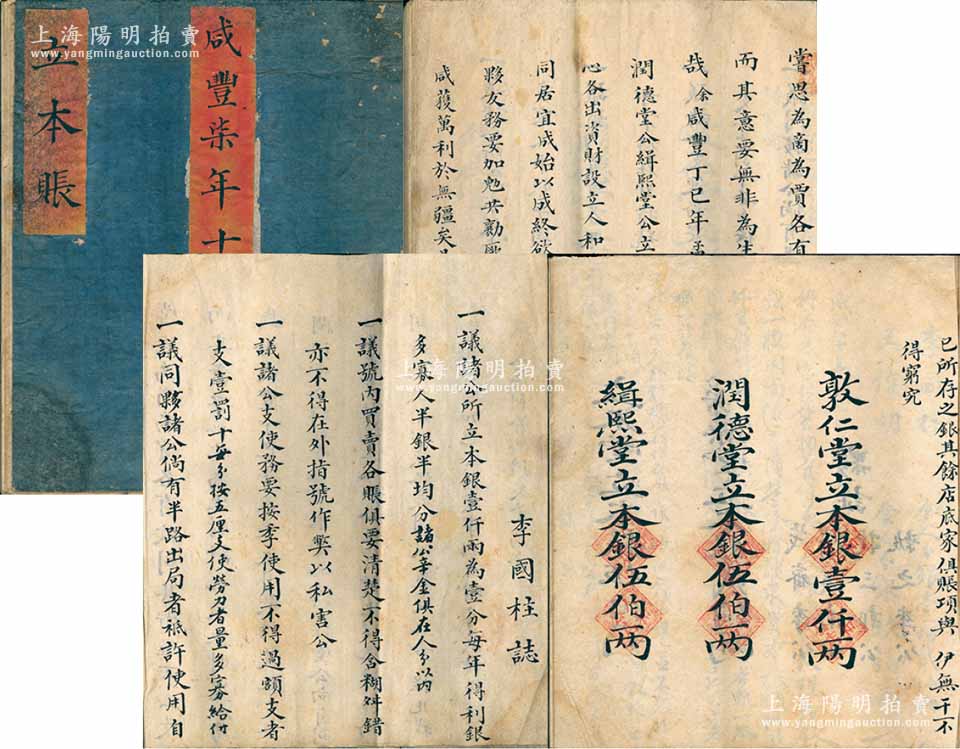 上海陽明拍賣
www.yangmingauction.com
咸豐柒年十
立本賬
嘗思為商為賈各有
而其意要無非為生
哉余咸豐丁巳年
潤德堂公緝熙堂公立
心各出資財設立人和
同居宜咸始以成終欲
夥友務要加勉共勸
咸獲萬利於無疆矣
李國柱誌
一議諸公所立本銀壹仟兩為壹分每年得利銀
多寡人半銀半均分諸公辛金俱在人分以內
一議號內買賣各賬俱要清楚不得含糊舛錯
亦不得在外指號作弊以私害公
一議諸公支使務要按季使用不得過額支者
支壹罰十每分按五厘支使勞力者量多寡給付
一議同夥諸公倘有半路出局者祗許使用自
已所存之銀其餘店底家俱賬項與 伊無干不
得窮究
敦仁堂立本銀壹仟兩
潤德堂立本銀伍伯兩
緝熙堂立本銀伍伯兩
上海陽明拍賣
www.yangmingauction.com
上海陽明拍賣
www.yangmingauction.com
上海陽明拍賣
www.yangmingauction.com